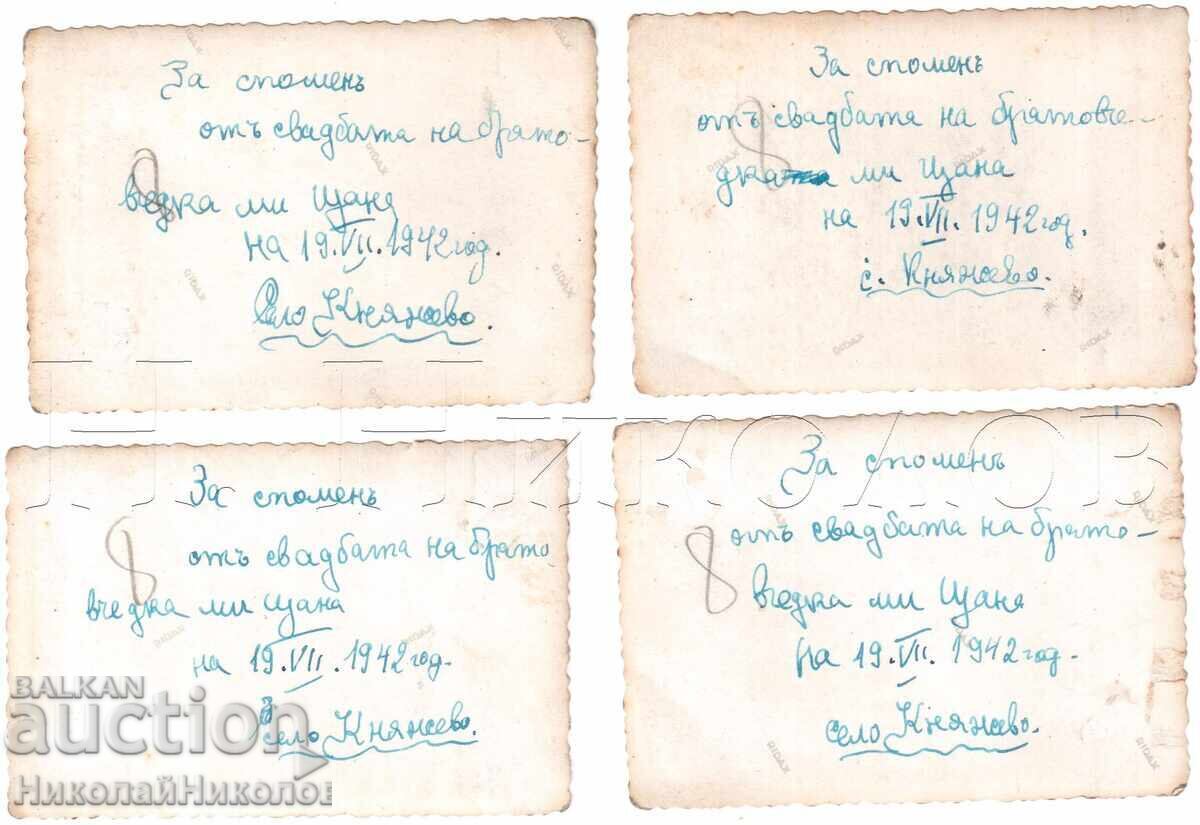 За споменъ
отъ свадбата на брато-
вчедка ми Щана
на 19.VII.1942 год.
Село Княжево.
8
RIDAX
За споменъ
отъ свадбата на братовче-
дка ми Щана
на 19.VII.1942 год.
с. Княжево.
8
RIDAX
За споменъ
отъ свадбата на брато
вчедка ми Щана
на 19.VII.1942 год.
село Княжево.
8
RIDAX
За споменъ
отъ свадбата на брато-
вчедка ми Щана
на 19.VII.1942 год.
село Княжево.
8
RIDAX
Н. Николов
BALKAN
auction
НиколайНиколов